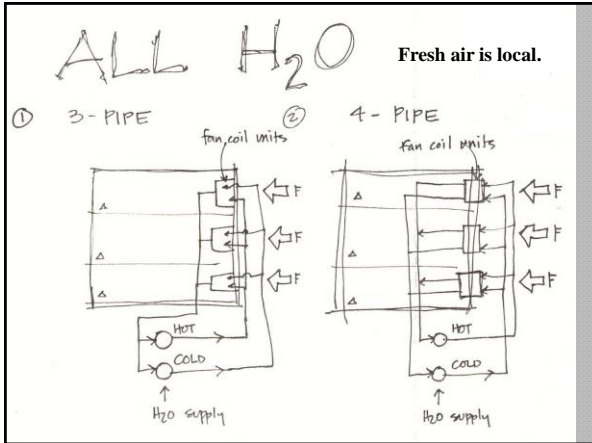 ALL H2O
Fresh air is local.
① 3-PIPE
fan coil units
F
F
F
HOT
COLD
H2O supply
② 4-PIPE
Fan coil units
F
F
F
HOT
COLD
H2O supply